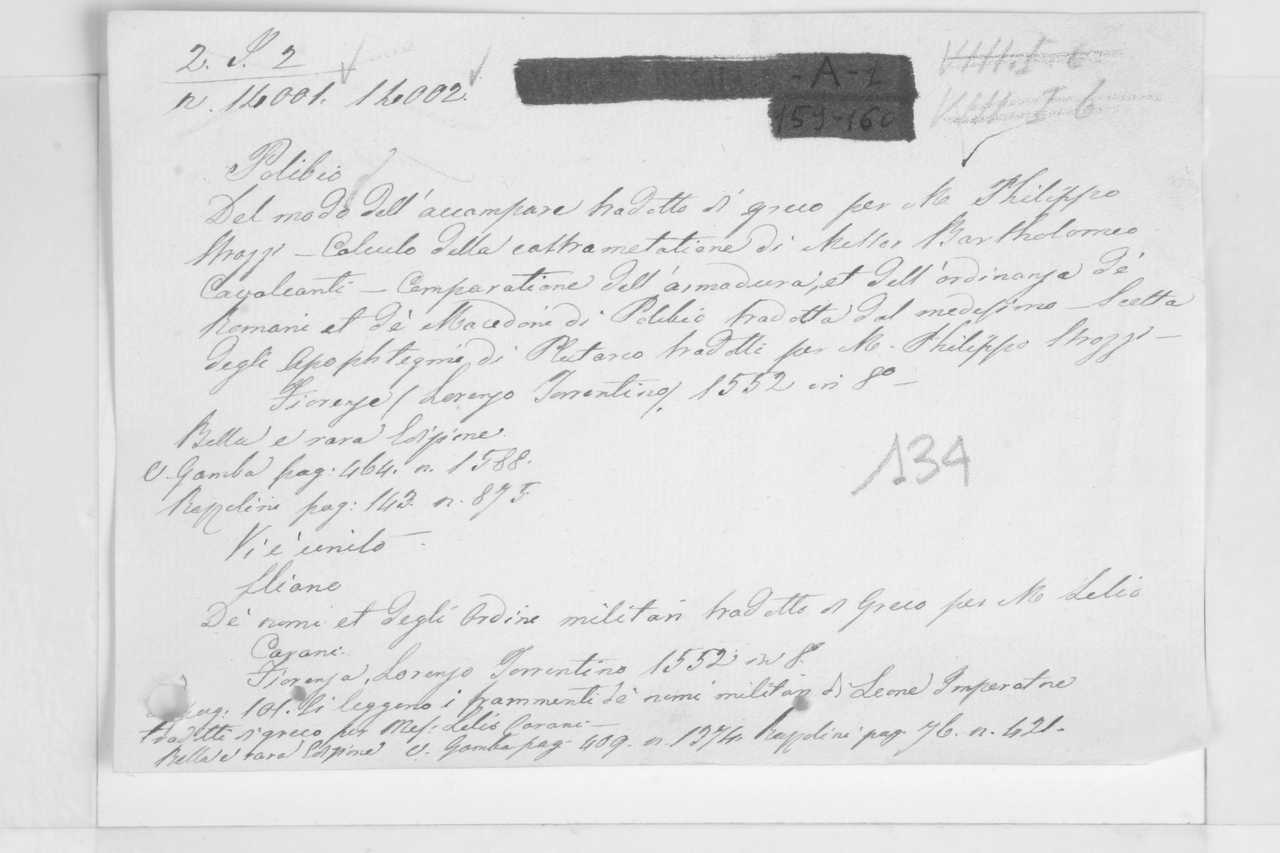 2. S. 2
n. 14001. 14002.
-A-2
159-160
VIII. I 6
VIII. I 6
Polibio
Del modo dell'accampare tradotto di greco per M. Philippo
Strozzi - Calculo della castrametatione di Messer Bartholomeo
Cavalcanti - Comparatione dell'armadura, et dell'ordinanza de'
Romani et de' Macedoni di Polibio tradotta dal medesimo - Scelta
degli Apophtegmi di Plutarco tradotti per M. Philippo Strozzi -
Fiorenze / Lorenzo Torrentino, 1552 in 8º -
Bella e rara Edizione.
V. Gamba pag: 464. n. 1588.
Razzolini pag: 143. n. 875
134
Vi è unito -
Eliano
De' nomi et degli Ordini militari tradotto di Greco per M. Lelio
Carani.
Fiorenza, Lorenzo Torrentino 1552 in 8º
pag: 101. Si leggono i frammenti de' nomi militari di Leone Imperatore
tradotti di greco per Mes. Lelio Carani -
Bella e rara Edizione V. Gamba pag. 409. n. 1374. Razzolini pag. 76. n. 421.